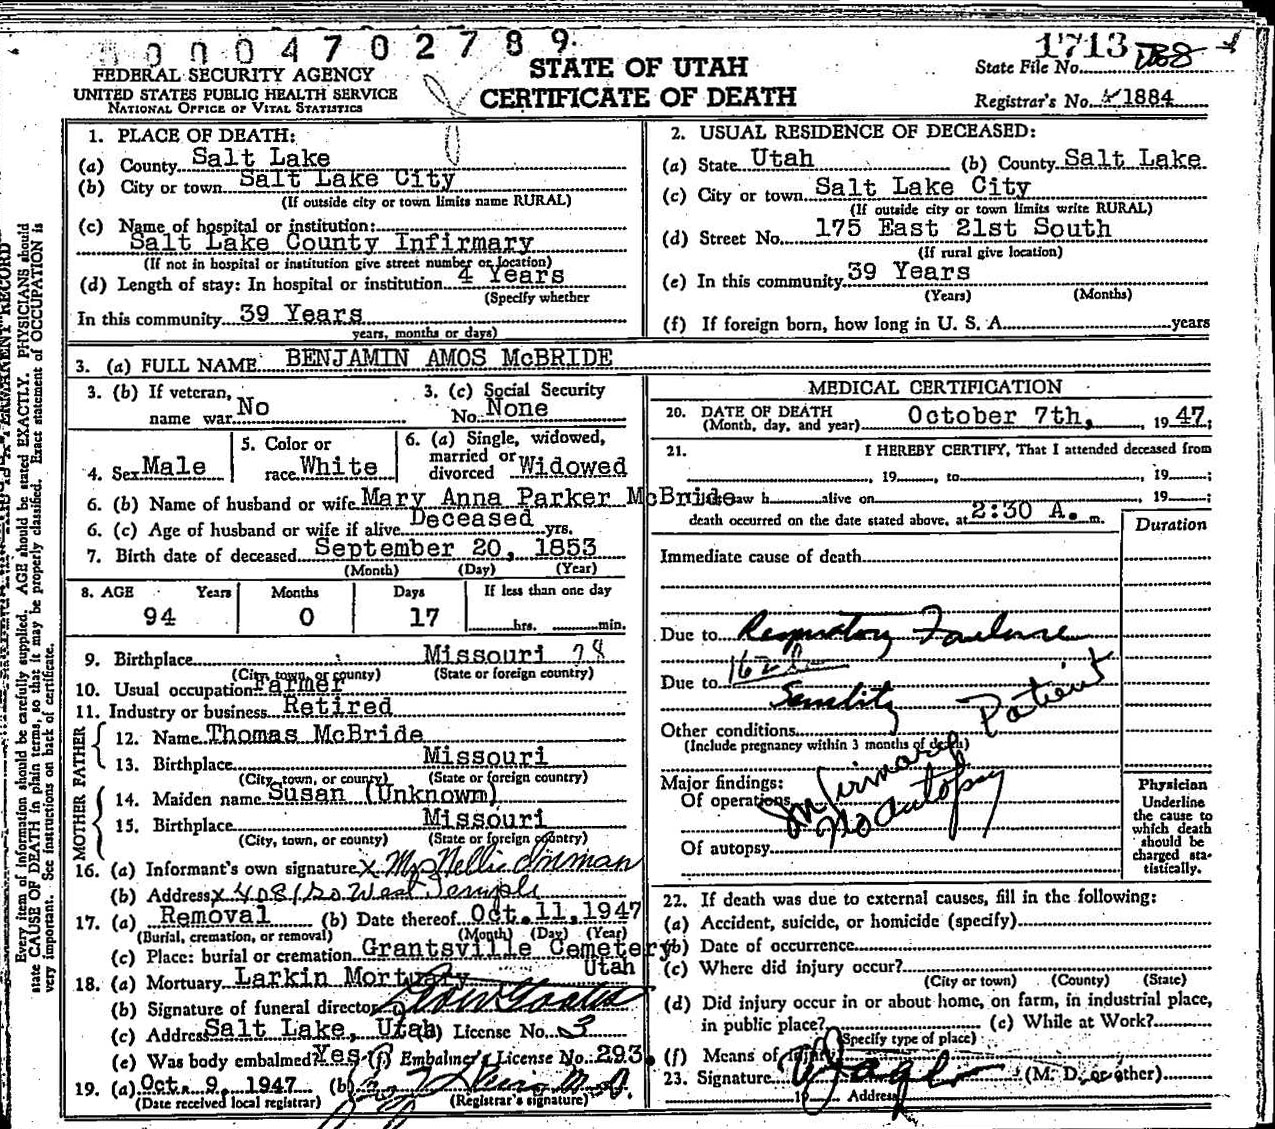 0004702789
1713
FEDERAL SECURITY AGENCY
UNITED STATES PUBLIC HEALTH SERVICE
NATIONAL OFFICE OF VITAL STATISTICS
STATE OF UTAH
CERTIFICATE OF DEATH
State File No.
Registrar's No. 1884
1. PLACE OF DEATH:
(a) County Salt Lake
(b) City or town Salt Lake City
(If outside city or town limits name RURAL)
(c) Name of hospital or institution:
Salt Lake County Infirmary
(If not in hospital or institution give street number or location)
(d) Length of stay: In hospital or institution 4 Years
(Specify whether
In this community 39 Years
years, months or days)
2. USUAL RESIDENCE OF DECEASED:
(a) State Utah (b) County Salt Lake
(c) City or town Salt Lake City
(If outside city or town limits write RURAL)
(d) Street No. 175 East 21st South
(If rural give location)
(e) In this community 39 Years
(Years) (Months)
(f) If foreign born, how long in U. S. A. years
3. (a) FULL NAME BENJAMIN AMOS McBRIDE
3. (b) If veteran, name war No
3. (c) Social Security No. None
4. Sex Male
5. Color or race White
6. (a) Single, widowed, married or divorced Widowed
6. (b) Name of husband or wife Mary Anna Parker McBride
6. (c) Age of husband or wife if alive Deceased yrs.
7. Birth date of deceased September 20, 1853
(Month) (Day) (Year)
8. AGE Years Months Days If less than one day
94 0 17 hrs. min.
9. Birthplace Missouri 78
(City, town, or county) (State or foreign country)
10. Usual occupation Farmer
11. Industry or business Retired
FATHER
12. Name Thomas McBride
13. Birthplace Missouri
(City, town, or county) (State or foreign country)
MOTHER
14. Maiden name Susan (Unknown)
15. Birthplace Missouri
(City, town, or county) (State or foreign country)
16. (a) Informant's own signature x Mrs Nellie Inman
(b) Address x 4081 So West Temple
17. (a) Removal (b) Date thereof Oct. 11, 1947
(Burial, cremation, or removal) (Month) (Day) (Year)
(c) Place: burial or cremation Grantsville Cemetery
Utah
18. (a) Mortuary Larkin Mortuary
(b) Signature of funeral director
(c) Address Salt Lake, Utah (d) License No. 53
(e) Was body embalmed? Yes (f) Embalmer's License No. 293.
19. (a) Oct. 9, 1947 (b) M.D.
(Date received local registrar) (Registrar's signature)
MEDICAL CERTIFICATION
20. DATE OF DEATH
(Month, day, and year) October 7th, 1947;
21. I HEREBY CERTIFY, That I attended deceased from
, 19 , to , 19 ;
saw h alive on , 19 ;
death occurred on the date stated above, at 2:30 A. m.
Duration
Immediate cause of death
Due to Respiratory Failure
162
Due to Senility
Other conditions
(Include pregnancy within 3 months of death)
Infirmary Patient
No autopsy
Major findings:
Of operations
Of autopsy
Physician
Underline
the cause to
which death
should be
charged sta-
tistically.
22. If death was due to external causes, fill in the following:
(a) Accident, suicide, or homicide (specify)
(b) Date of occurrence
(c) Where did injury occur?
(City or town) (County) (State)
(d) Did injury occur in or about home, on farm, in industrial place,
in public place? (e) While at Work?
(Specify type of place)
(f) Means of injury
23. Signature (M. D. or other)
19 Address
Every item of information should be carefully supplied. AGE should be stated EXACTLY. PHYSICIANS should
state CAUSE OF DEATH in plain terms, so that it may be properly classified. Exact statement of OCCUPATION is
very important. See instructions on back of certificate.